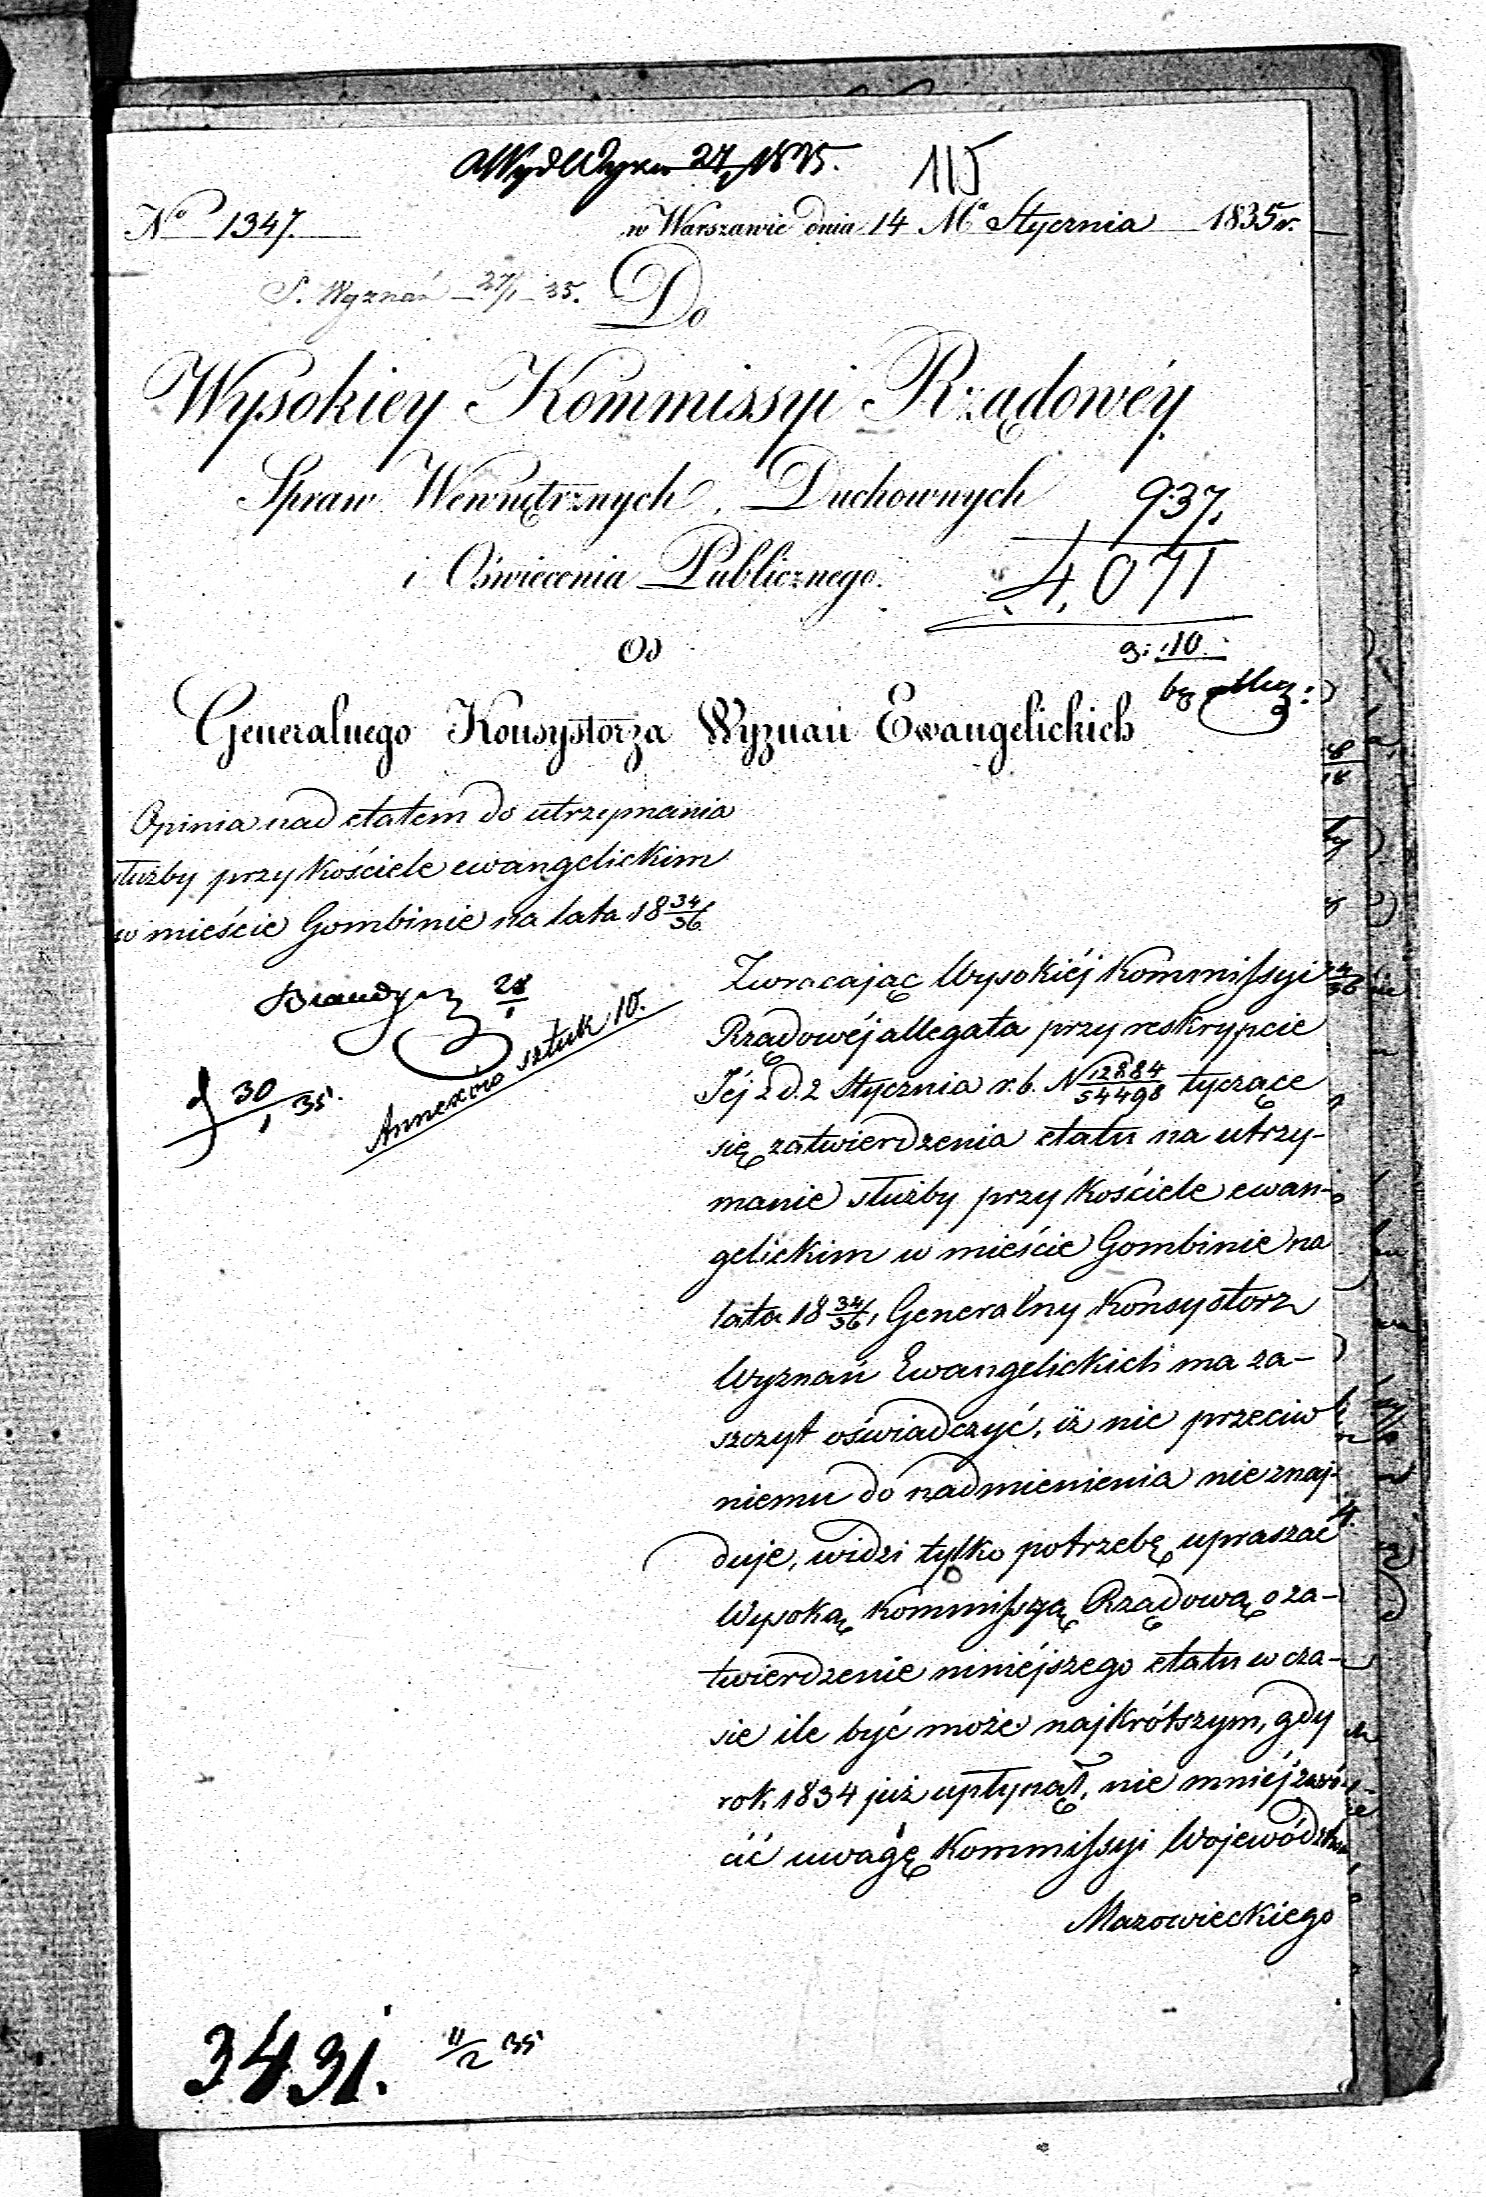 115
No 1347. w Warszawie dnia 14 Ma Stycznia 1835 r.
S. Wyznań 27/1 35.
Do
Wysokiey Kommissyi Rządowéy
Spraw Wewnętrznych, Duchownych
i Oświecenia Publicznego.
937.
4,071
Od
Generalnego Konsystorza Wyznań Ewangelickich
Opinia nad etatem do utrzymania
służby przy Kościele ewangelickim
w mieście Gombinie na lata 18 34/36
28/1
30/1 35.
Annexów sztuk 10.
Zwracając Wysokiéj Kommissyi
Rządowéj allegata przy reskrypcie
Jéj z d. 2 Stycznia r. b. N 12884/54498 tyczące
się zatwierdzenia etatu na utrzy-
manie służby przy Kościele ewan-
gelickim w mieście Gombinie na
lata 18 34/36, Generalny Konsystorz
Wyznań Ewangelickich ma za-
szczyt oświadczyć, iż nic przeciw
niemu do nadmienienia nie znaj-
duje, widzi tylko potrzebę upraszać
Wysoką Kommissyą Rządową o za-
twierdzenie niniéjszego etatu w cza-
sie ile być może najkrótszym, gdy
rok 1834 już upłynął, nie mniéj zwró-
cić uwagę Kommissyi Województwa
Mazowieckiego
3431. 11/2 35